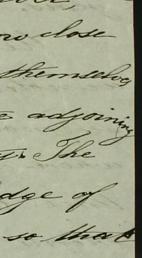 close
themselves
adjoining
The
of
so that